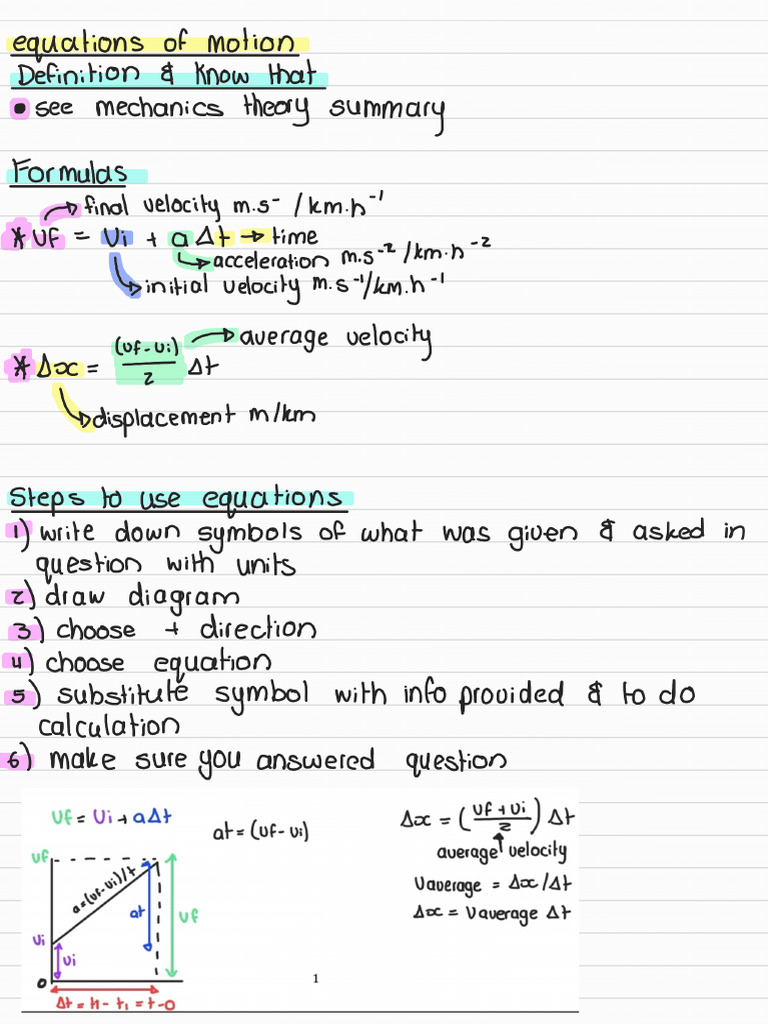 equations of motion
Definition & know that
• see mechanics theory summary
Formulas
final velocity m.s⁻ /km.h⁻¹
* vf = vi + a Δt → time
acceleration m.s⁻²/km.h⁻²
initial velocity m.s⁻¹/km.h⁻¹
average velocity
* Δx = (vf-vi)/2 Δt
displacement m/km
Steps to use equations
1) write down symbols of what was given & asked in
question with units
2) draw diagram
3) choose + direction
4) choose equation
5) substitute symbol with info provided & to do
calculation
6) make sure you answered question
vf = vi + aΔt
at = (vf - vi)
Δx = (vf + vi/2) Δt
average velocity
vaverage = Δx/Δt
Δx = vaverage Δt
vf
a=(vf-vi)/t
at
vf
vi
vi
0
1